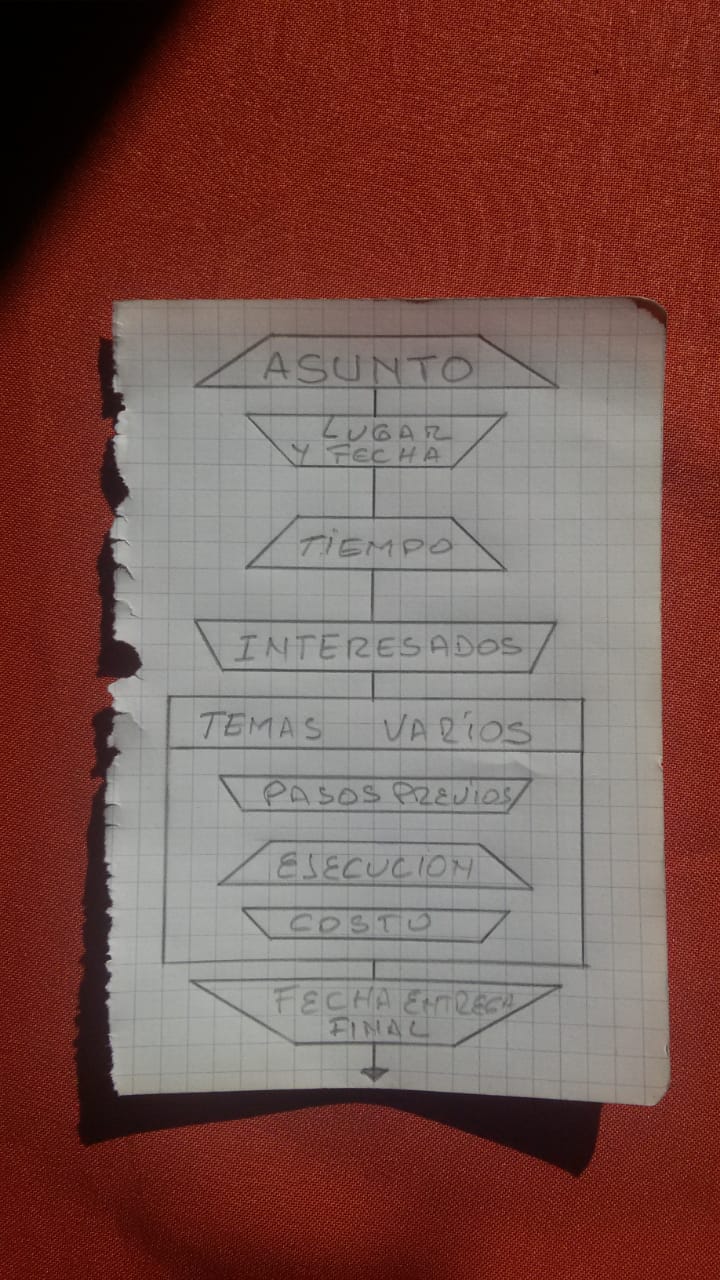 ASUNTO
LUGAR
Y FECHA
TiEMPO
INTERESADOS
TEMAS VARiOS
PASOS PREViOS
EJECUCION
COSTO
FECHA ENTREGA
FINAL